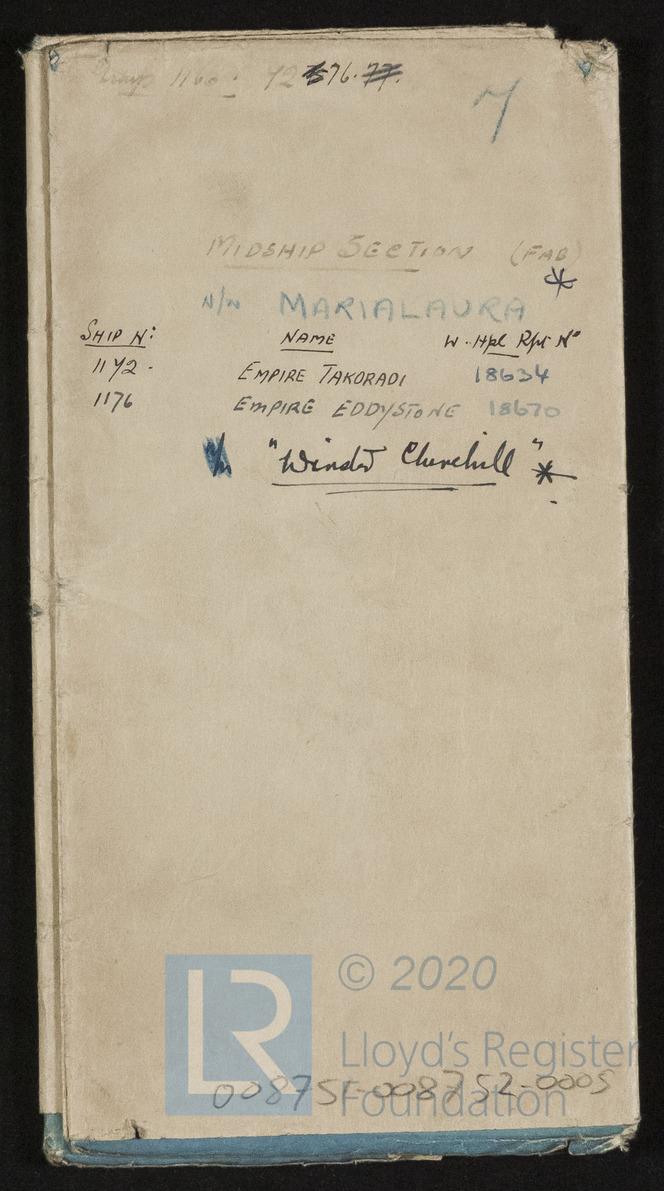 1160: 72 76. 77.
7
MIDSHIP SECTION (FAB)
*
N/N MARIALAURA
SHIP Nº: NAME W. Hpl Rpt Nº
1172. EMPIRE TAKORADI 18634
1176 EMPIRE EDDYSTONE 18670
"Winston Churchill" *
LR
© 2020
Lloyd's Register
Foundation
008751-008752-0005